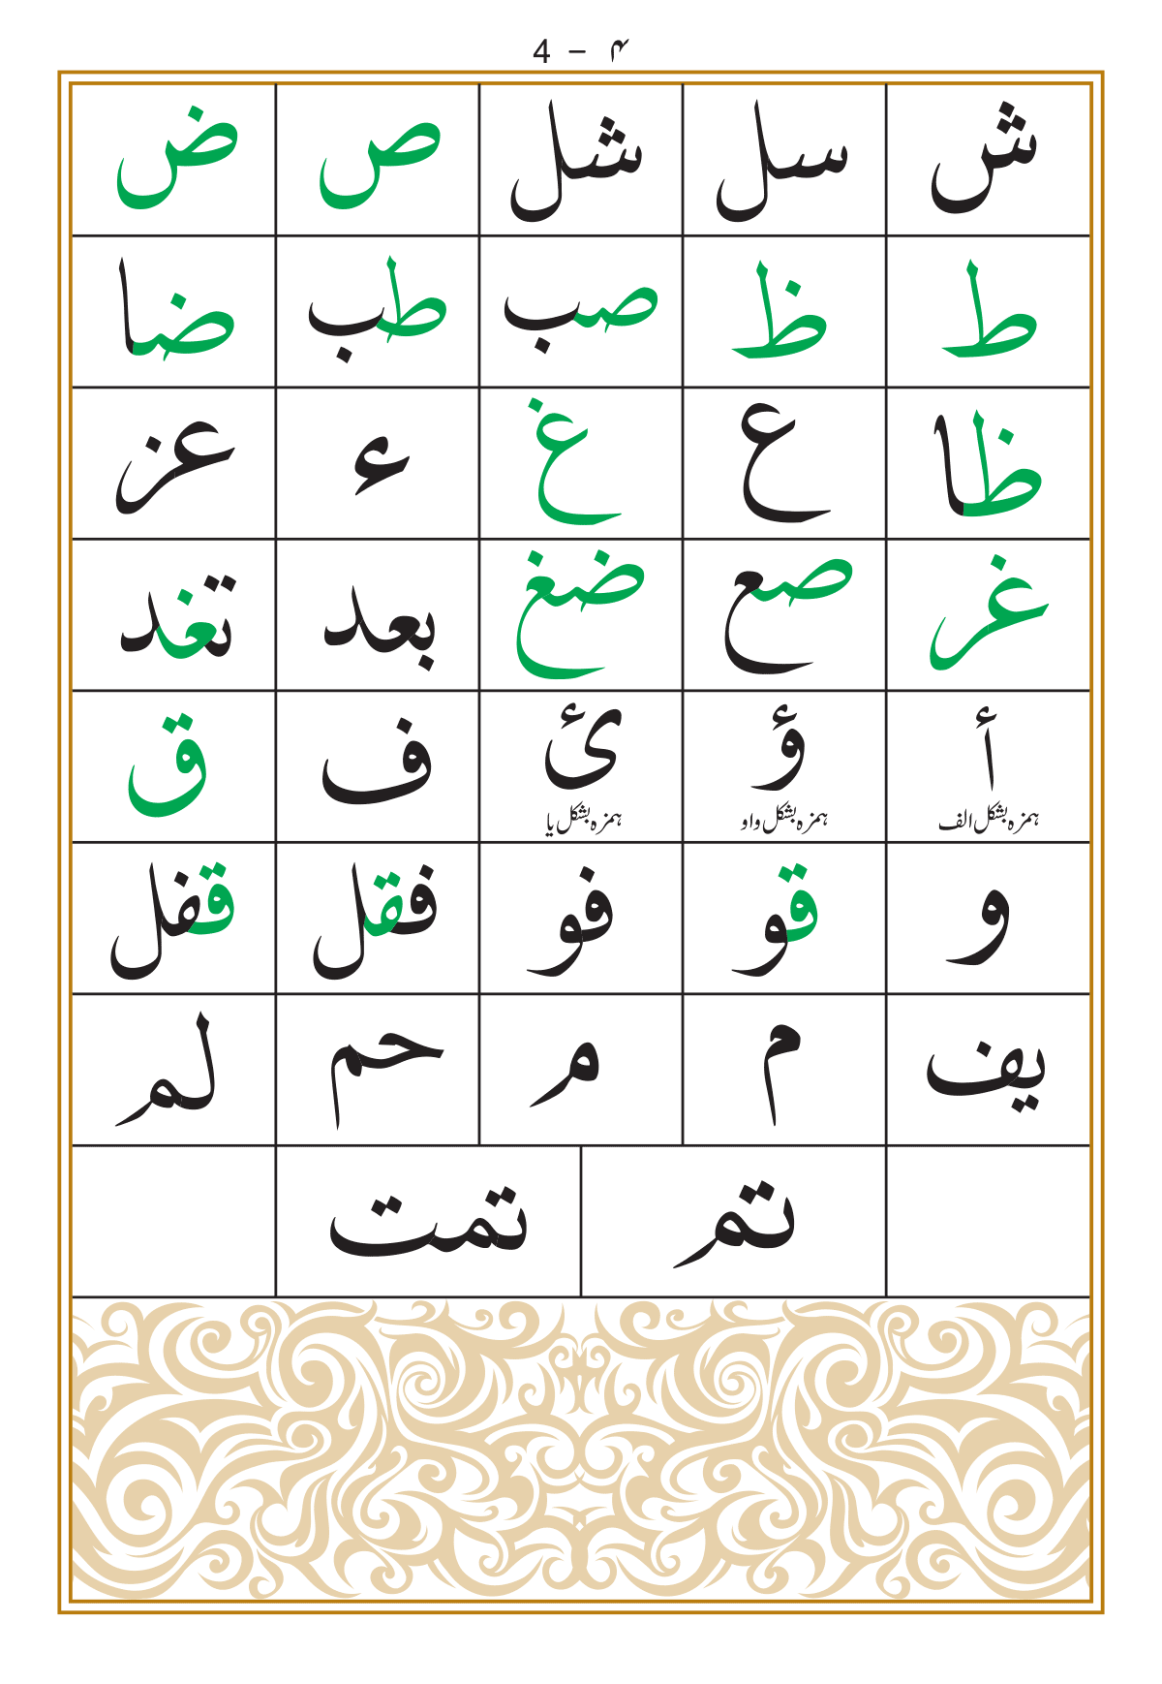 4 – ۴
ش سل شل ص ض
ط ظ صب طب ضا
ظا ع غ ء عز
غر صع ضغ بعد تغد
أ ؤ ئ ف ق
ہمزہ بشکل الف ہمزہ بشکل واو ہمزہ بشکل یا
و قو فو فقل قفل
يف م م حم لم
تم تمت